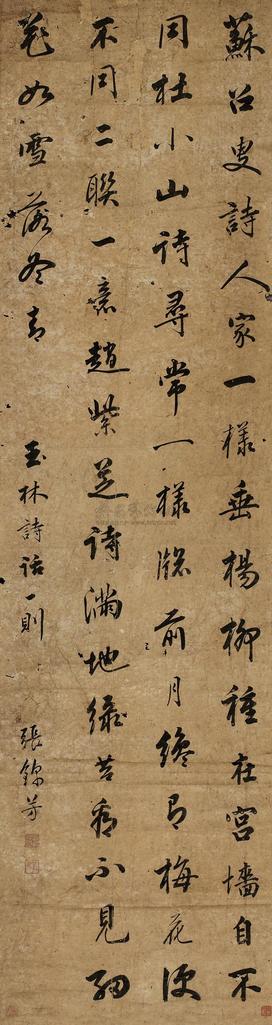 蘇召叟詩人家一樣垂楊柳種在宮墻自不
同杜小山詩尋常一樣牕前月纔有梅花便
不同二聯一意趙紫芝詩滿地綠苔看不見細
花如雪落冬青
玉林詩話一則
張錦芳